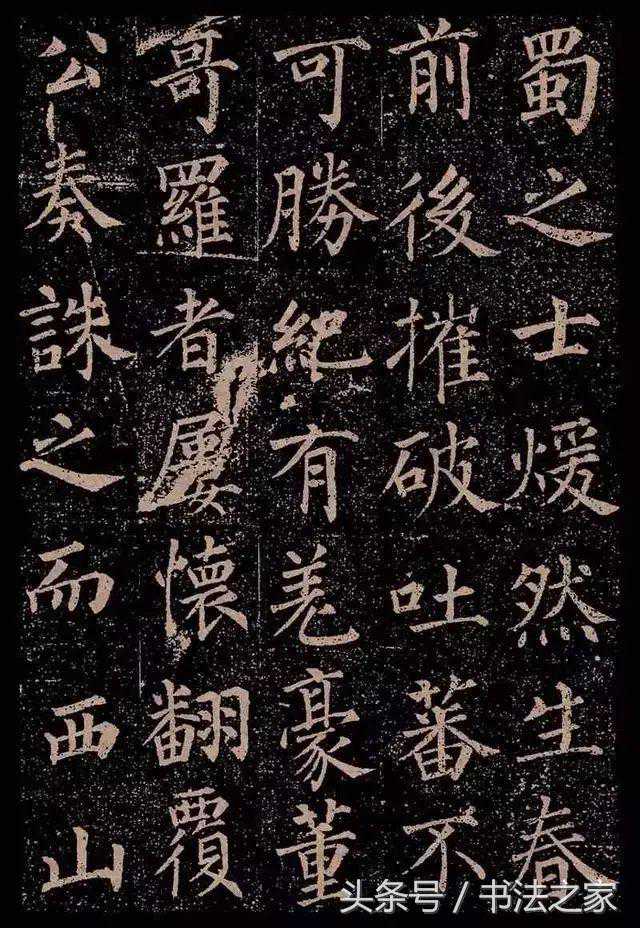 蜀之士煖然生春
前後摧破吐蕃不
可勝紀有羌豪董
哥羅者屢懷翻覆
公奏誅之而西山
头条号 / 书法之家